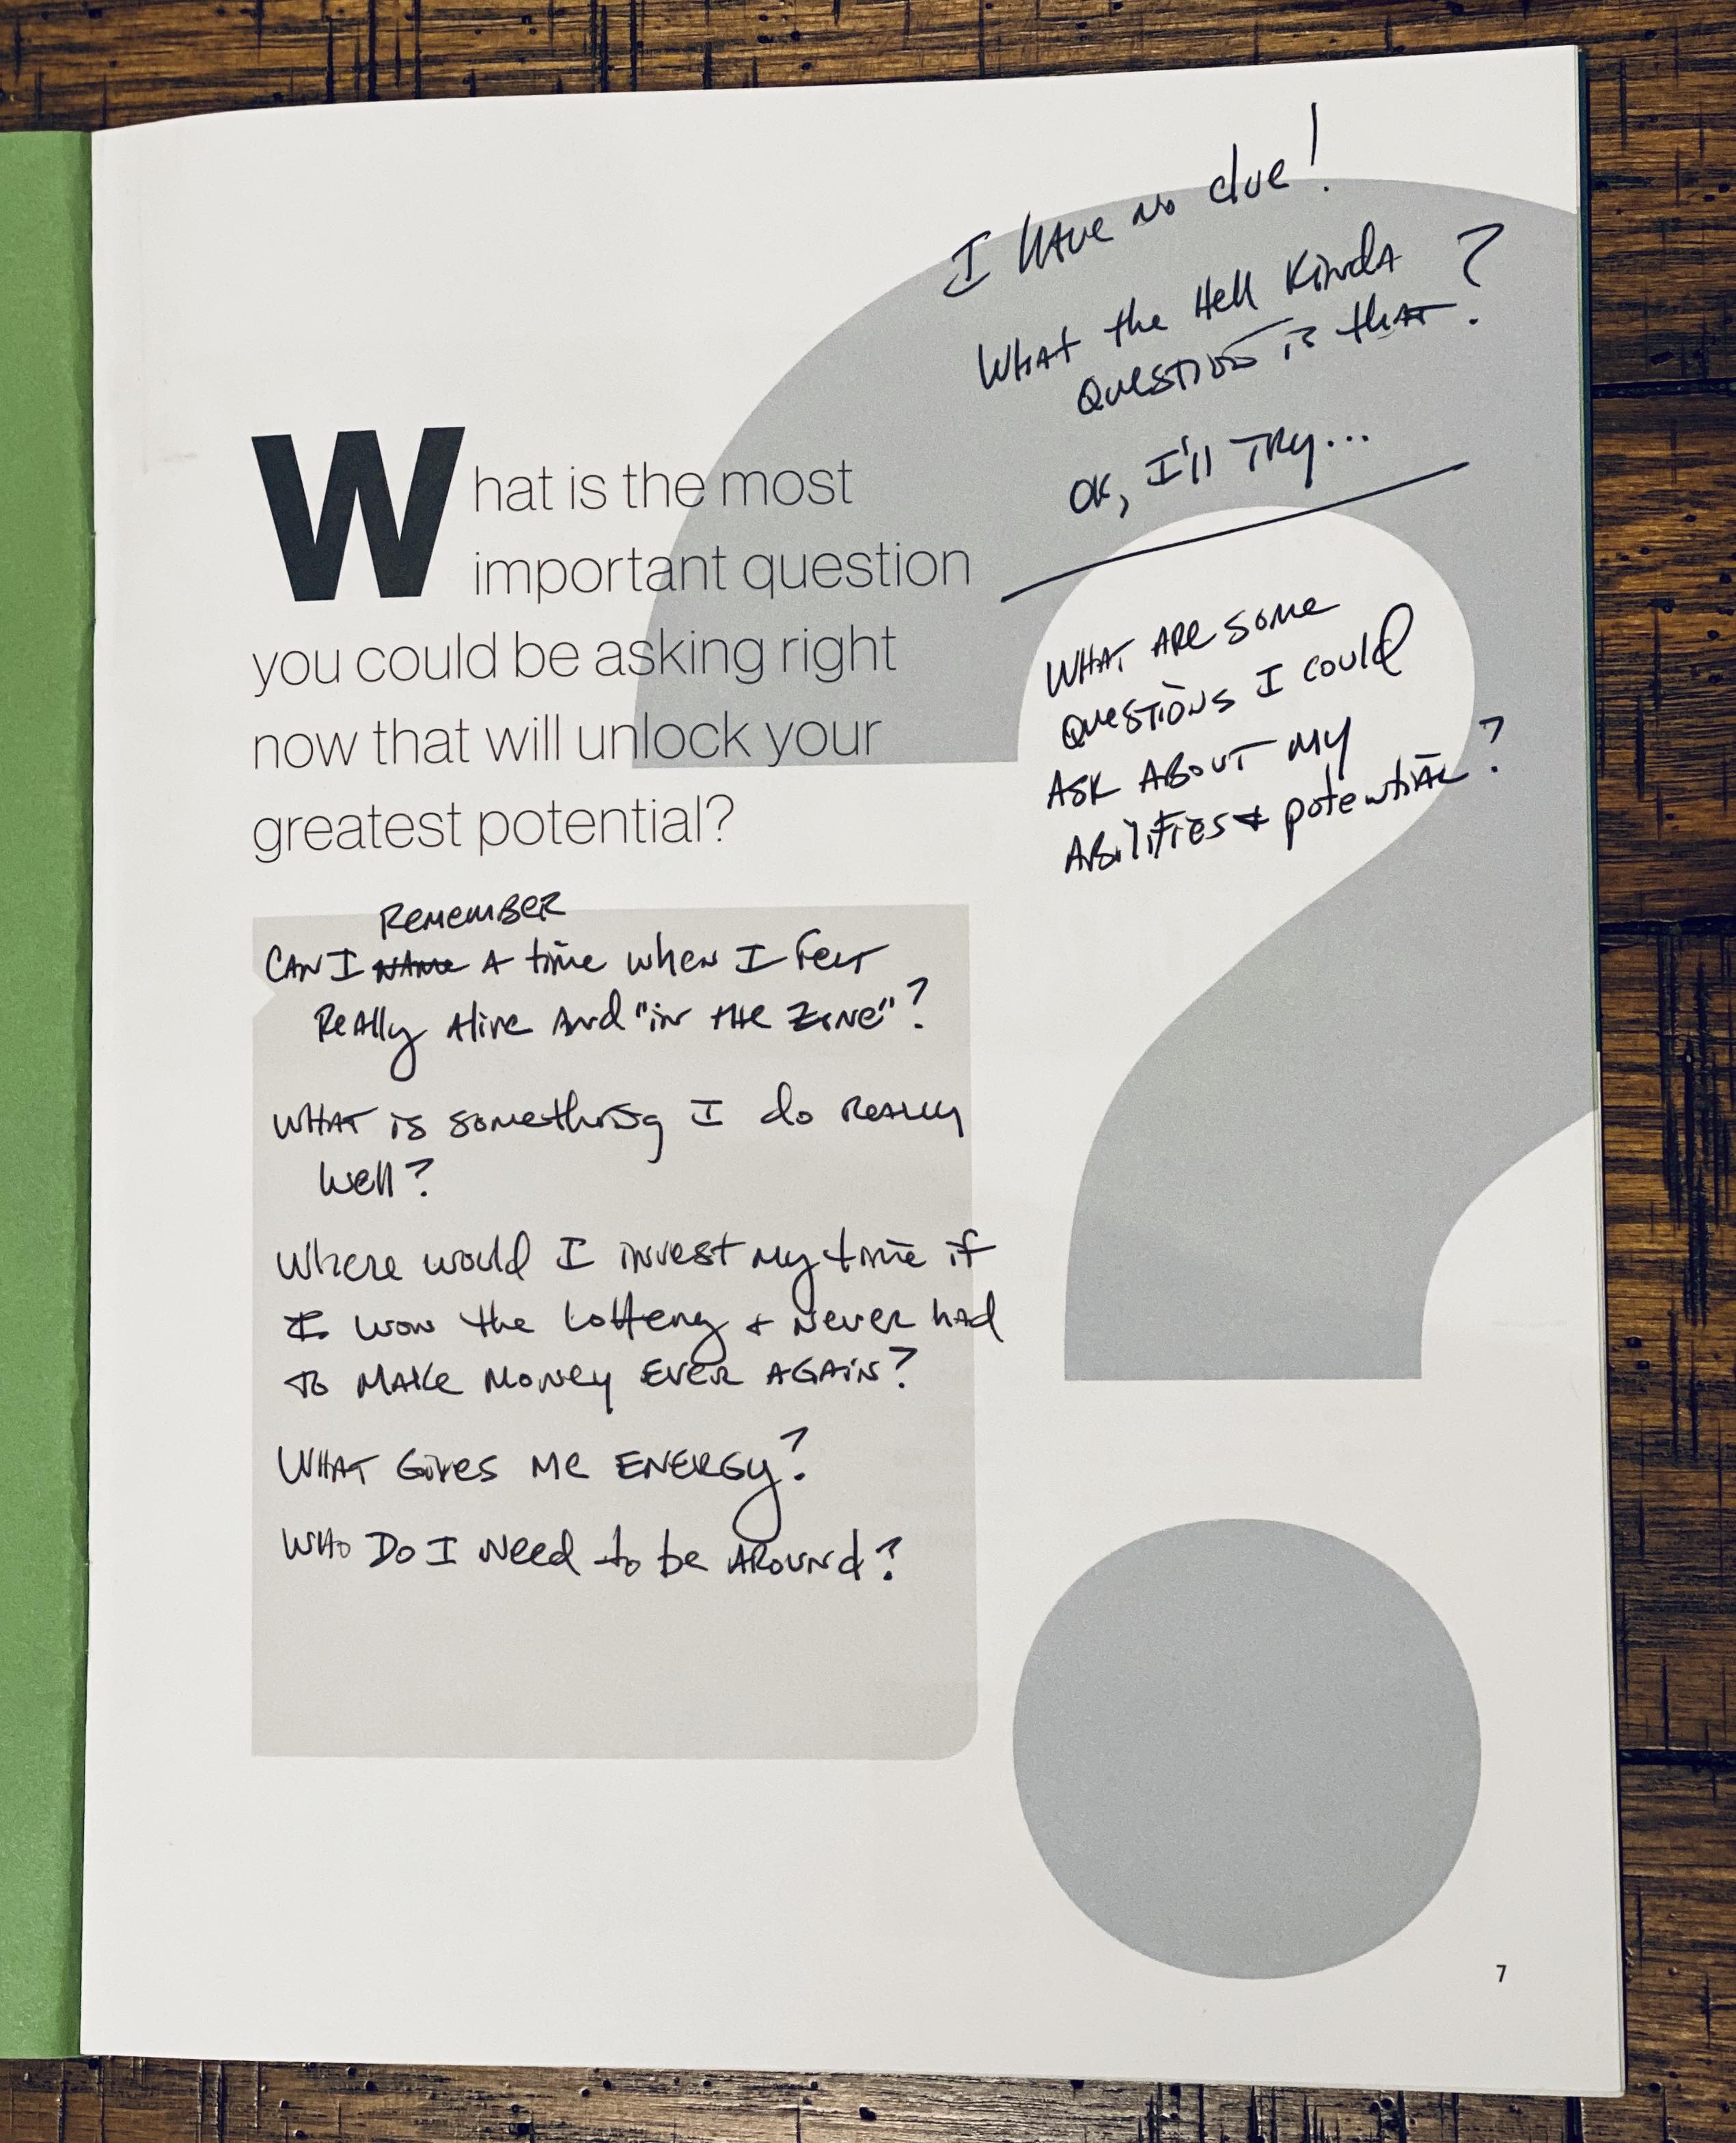 I HAVE NO clue!
WHAT the Hell Kinda
QUESTION is that?
OK, I'll TRY...
What is the most
important question
you could be asking right
now that will unlock your
greatest potential?
WHAT ARE some
QUESTIONS I could
ASK ABOUT MY
ABilities & potential?
REMEMBER
CAN I NAME A time when I felt
Really Alive And "in the ZONE"?
WHAT is something I do REALLY
well?
Where would I invest my time if
I won the Lottery & Never had
TO MAKE MONEY EVER AGAIN?
WHAT Gives Me ENERGY?
WHO DO I Need to be AROUND?
7